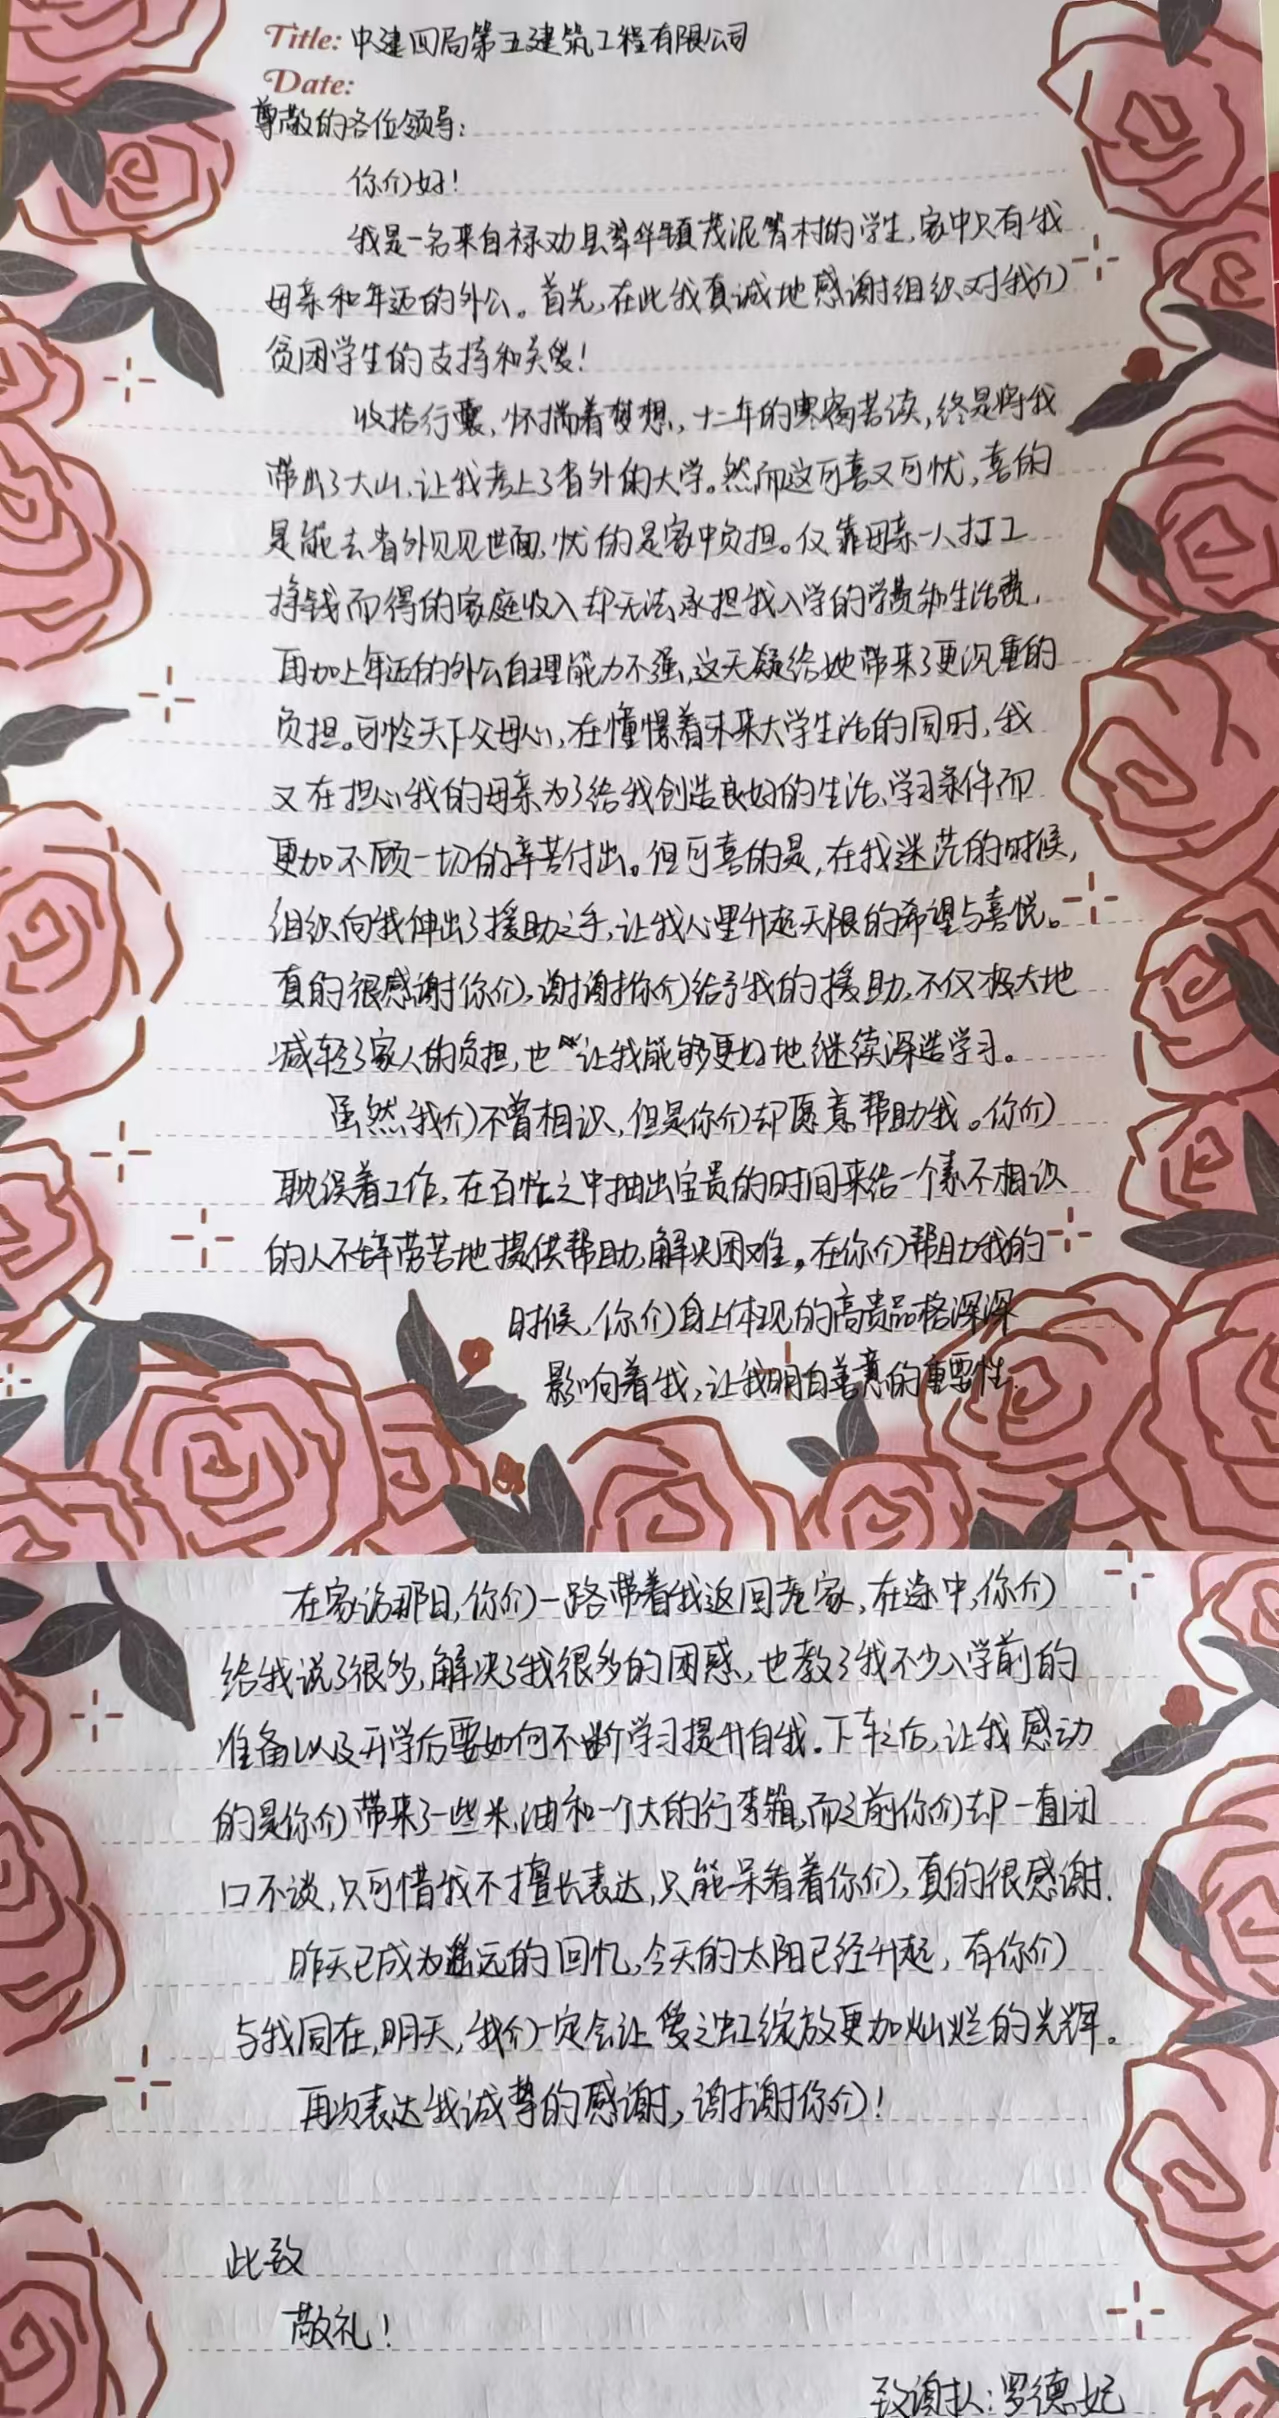 Title: 中建四局第五建筑工程有限公司
Date:
尊敬的各位领导：
你们好！
我是一名来自禄劝县翠华镇茂泥箐村的学生，家中只有我
母亲和年迈的外公。首先，在此我真诚地感谢组织对我们
贫困学生的支持和关爱！
收拾行囊，怀揣着梦想，十二年的寒窗苦读，终是将我
带出了大山，让我考上了省外的大学。然而这可喜又可忧，喜的
是能去省外见见世面，忧的是家中负担。仅靠母亲一人打工
挣钱而得的家庭收入却无法承担我入学的学费和生活费，
再加上年迈的外公自理能力不强，这无疑给她带来了更沉重的
负担。可怜天下父母心，在憧憬着未来大学生活的同时，我
又在担心我的母亲为了给我创造良好的生活、学习条件而
更加不顾一切的辛苦付出。但可喜的是，在我迷茫的时候，
组织向我伸出了援助之手，让我心里升起无限的希望与喜悦。
真的很感谢你们，谢谢你们给予我的援助，不仅极大地
减轻了家人的负担，也让我能够更好地继续深造学习。
虽然我们不曾相识，但是你们却愿意帮助我。你们
耽误着工作，在百忙之中抽出宝贵的时间来给一个素不相识
的人不辞劳苦地提供帮助，解决困难。在你们帮助我的
时候，你们身上体现的高贵品格深深
影响着我，让我明白善意的重要性。
在家访那日，你们一路带着我返回老家，在途中，你们
给我说了很多，解决了我很多的困惑，也教了我不少入学前的
准备以及开学后要如何不断学习提升自我。下车之后，让我感动
的是你们带来了一些米、油和一个大的行李箱，而之前你们却一直闭
口不谈，只可惜我不擅长表达，只能呆看着你们，真的很感谢。
昨天已成为遥远的回忆，今天的太阳已经升起，有你们
与我同在，明天，我们一定会让爱之虹绽放更加灿烂的光辉。
再次表达我诚挚的感谢，谢谢你们！
此致
敬礼！
致谢人：罗德妃